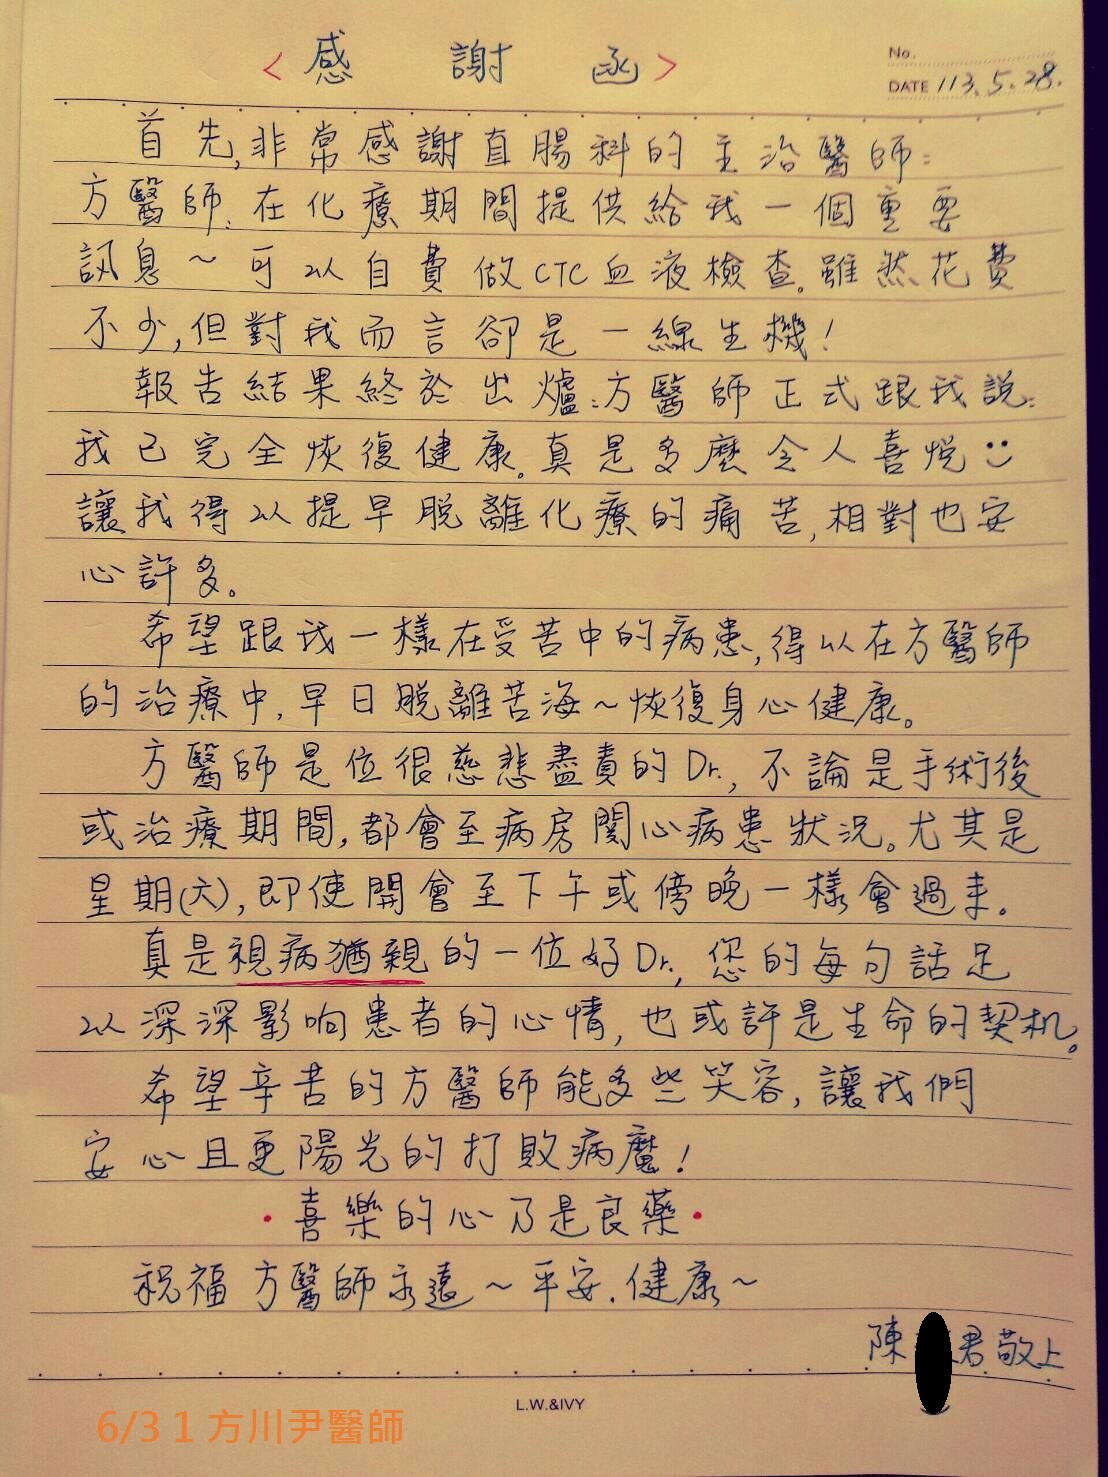 <感謝函>
No.
DATE 113.5.28.
首先,非常感謝直腸科的主治醫師:
方醫師.在化療期間提供給我一個重要
訊息~可以自費做CTC血液檢查。雖然花費
不少,但對我而言卻是一線生機!
報告結果終於出爐:方醫師正式跟我說:
我已完全恢復健康。真是多麼令人喜悅
讓我得以提早脫離化療的痛苦,相對也安
心許多。
希望跟我一樣在受苦中的病患,得以在方醫師
的治療中,早日脫離苦海~恢復身心健康。
方醫師是位很慈悲盡責的Dr.,不論是手術後
或治療期間,都會至病房關心病患狀況。尤其是
星期(六),即使開會至下午或傍晚一樣會過來。
真是視病猶親的一位好Dr.,您的每句話足
以深深影响患者的心情,也或許是生命的契机。
希望辛苦的方醫師能多些笑容,讓我們
安心且更陽光的打敗病魔!
·喜樂的心乃是良藥·
祝福 方醫師永遠~平安.健康~
陳 君敬上
L.W.&IVY
6/3 1 方川尹醫師